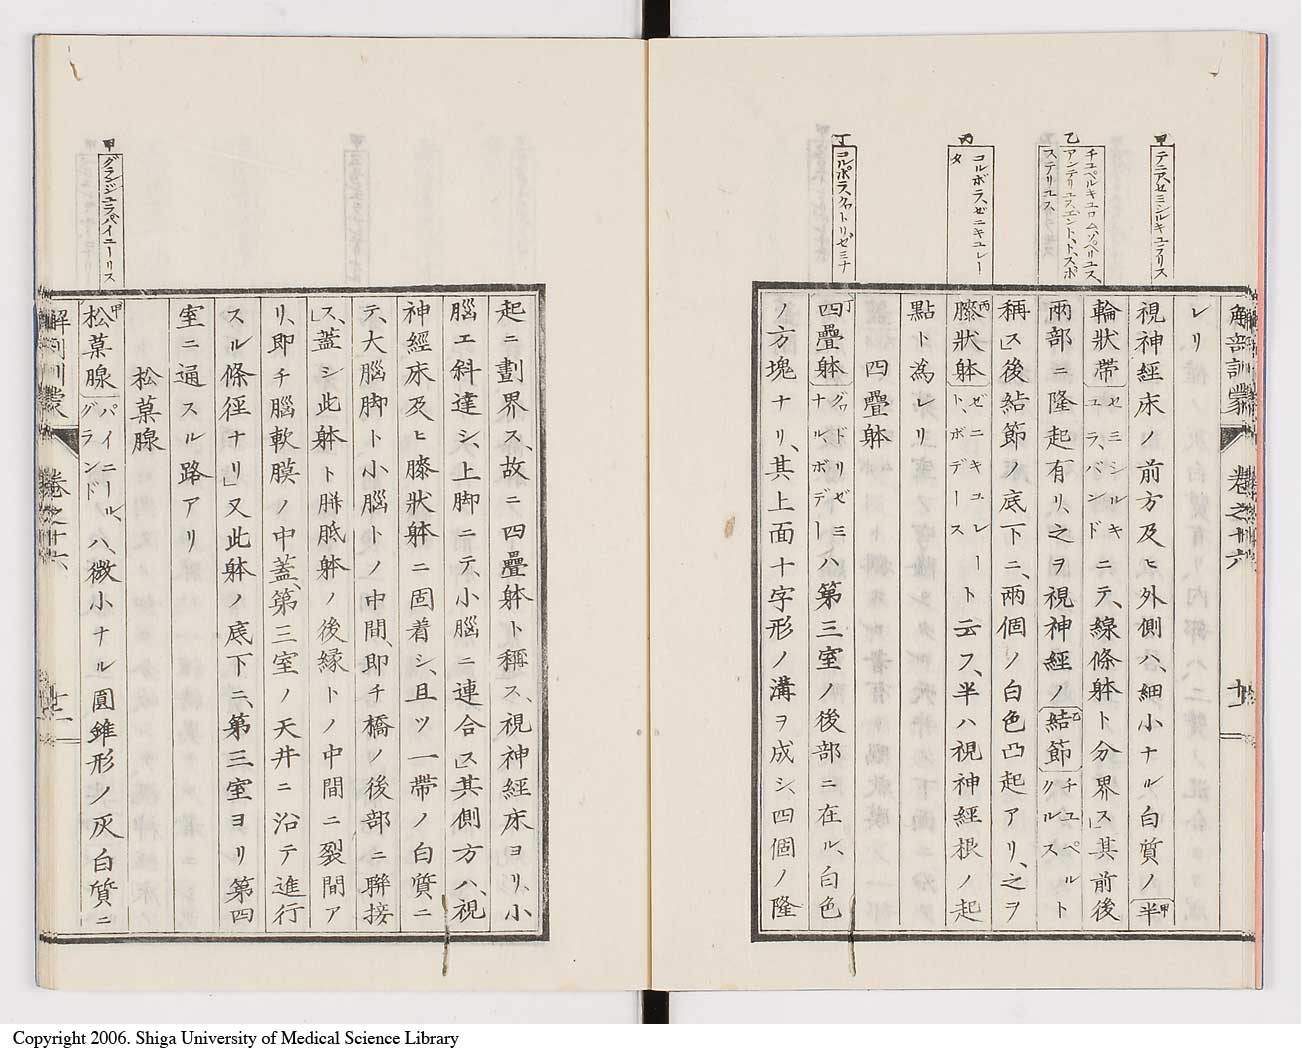 甲
テニスセミシルキユラリス
乙
チユペルキユロムソペリユス、
アンテリユスエント、トスポ
ステリユス
丙
コルボラ、ゼニキユレー
タ
丁
コルポラ、クワトリゼミナ
解剖訓蒙 卷之十六 十一
レリ
視神經床ノ前方及ヒ外側ハ、細小ナル白質ノ半甲
輪狀帶セミシルキユラ、バンドニテ、線條躰ト分界ス」其前後
兩部ニ隆起有リ、之ヲ視神經ノ結節乙チユペルクルスト
稱ス」後結節ノ底下ニ、兩個ノ白色凸起アリ、之ヲ
膝狀躰丙ゼニキユレート、ボデースト云フ、半ハ視神經根ノ起
點ト為レリ
四疊躰
四疊躰丁クワドリゼミナル、ボデーハ、第三室ノ後部ニ在ル、白色
ノ方塊ナリ、其上面十字形ノ溝ヲ成シ、四個ノ隆
甲
グランジユラ、パイニーリス
起ニ劃界ス、故ニ四疊躰ト稱ス、視神經床ヨリ、小
腦エ斜達シ、上脚ニテ、小腦ニ連合ス」其側方ハ、視
神經床及ヒ膝狀躰ニ固着シ、且ツ一帶ノ白質ニ
テ、大腦脚ト小腦トノ中間、即チ橋ノ後部ニ聯接
ス、蓋シ此躰ト胼胝躰ノ後縁トノ中間ニ裂間ア
リ、即チ腦軟膜ノ中蓋、第三室ノ天井ニ沿テ進行
スル條徑ナリ」又此躰ノ底下ニ、第三室ヨリ第四
室ニ通スル路アリ
松菓腺
松菓腺甲パイニール、グランドハ、微小ナル圓錐形ノ灰白質ニ
解剖訓蒙 卷之十六
Copyright 2006. Shiga University of Medical Science Library